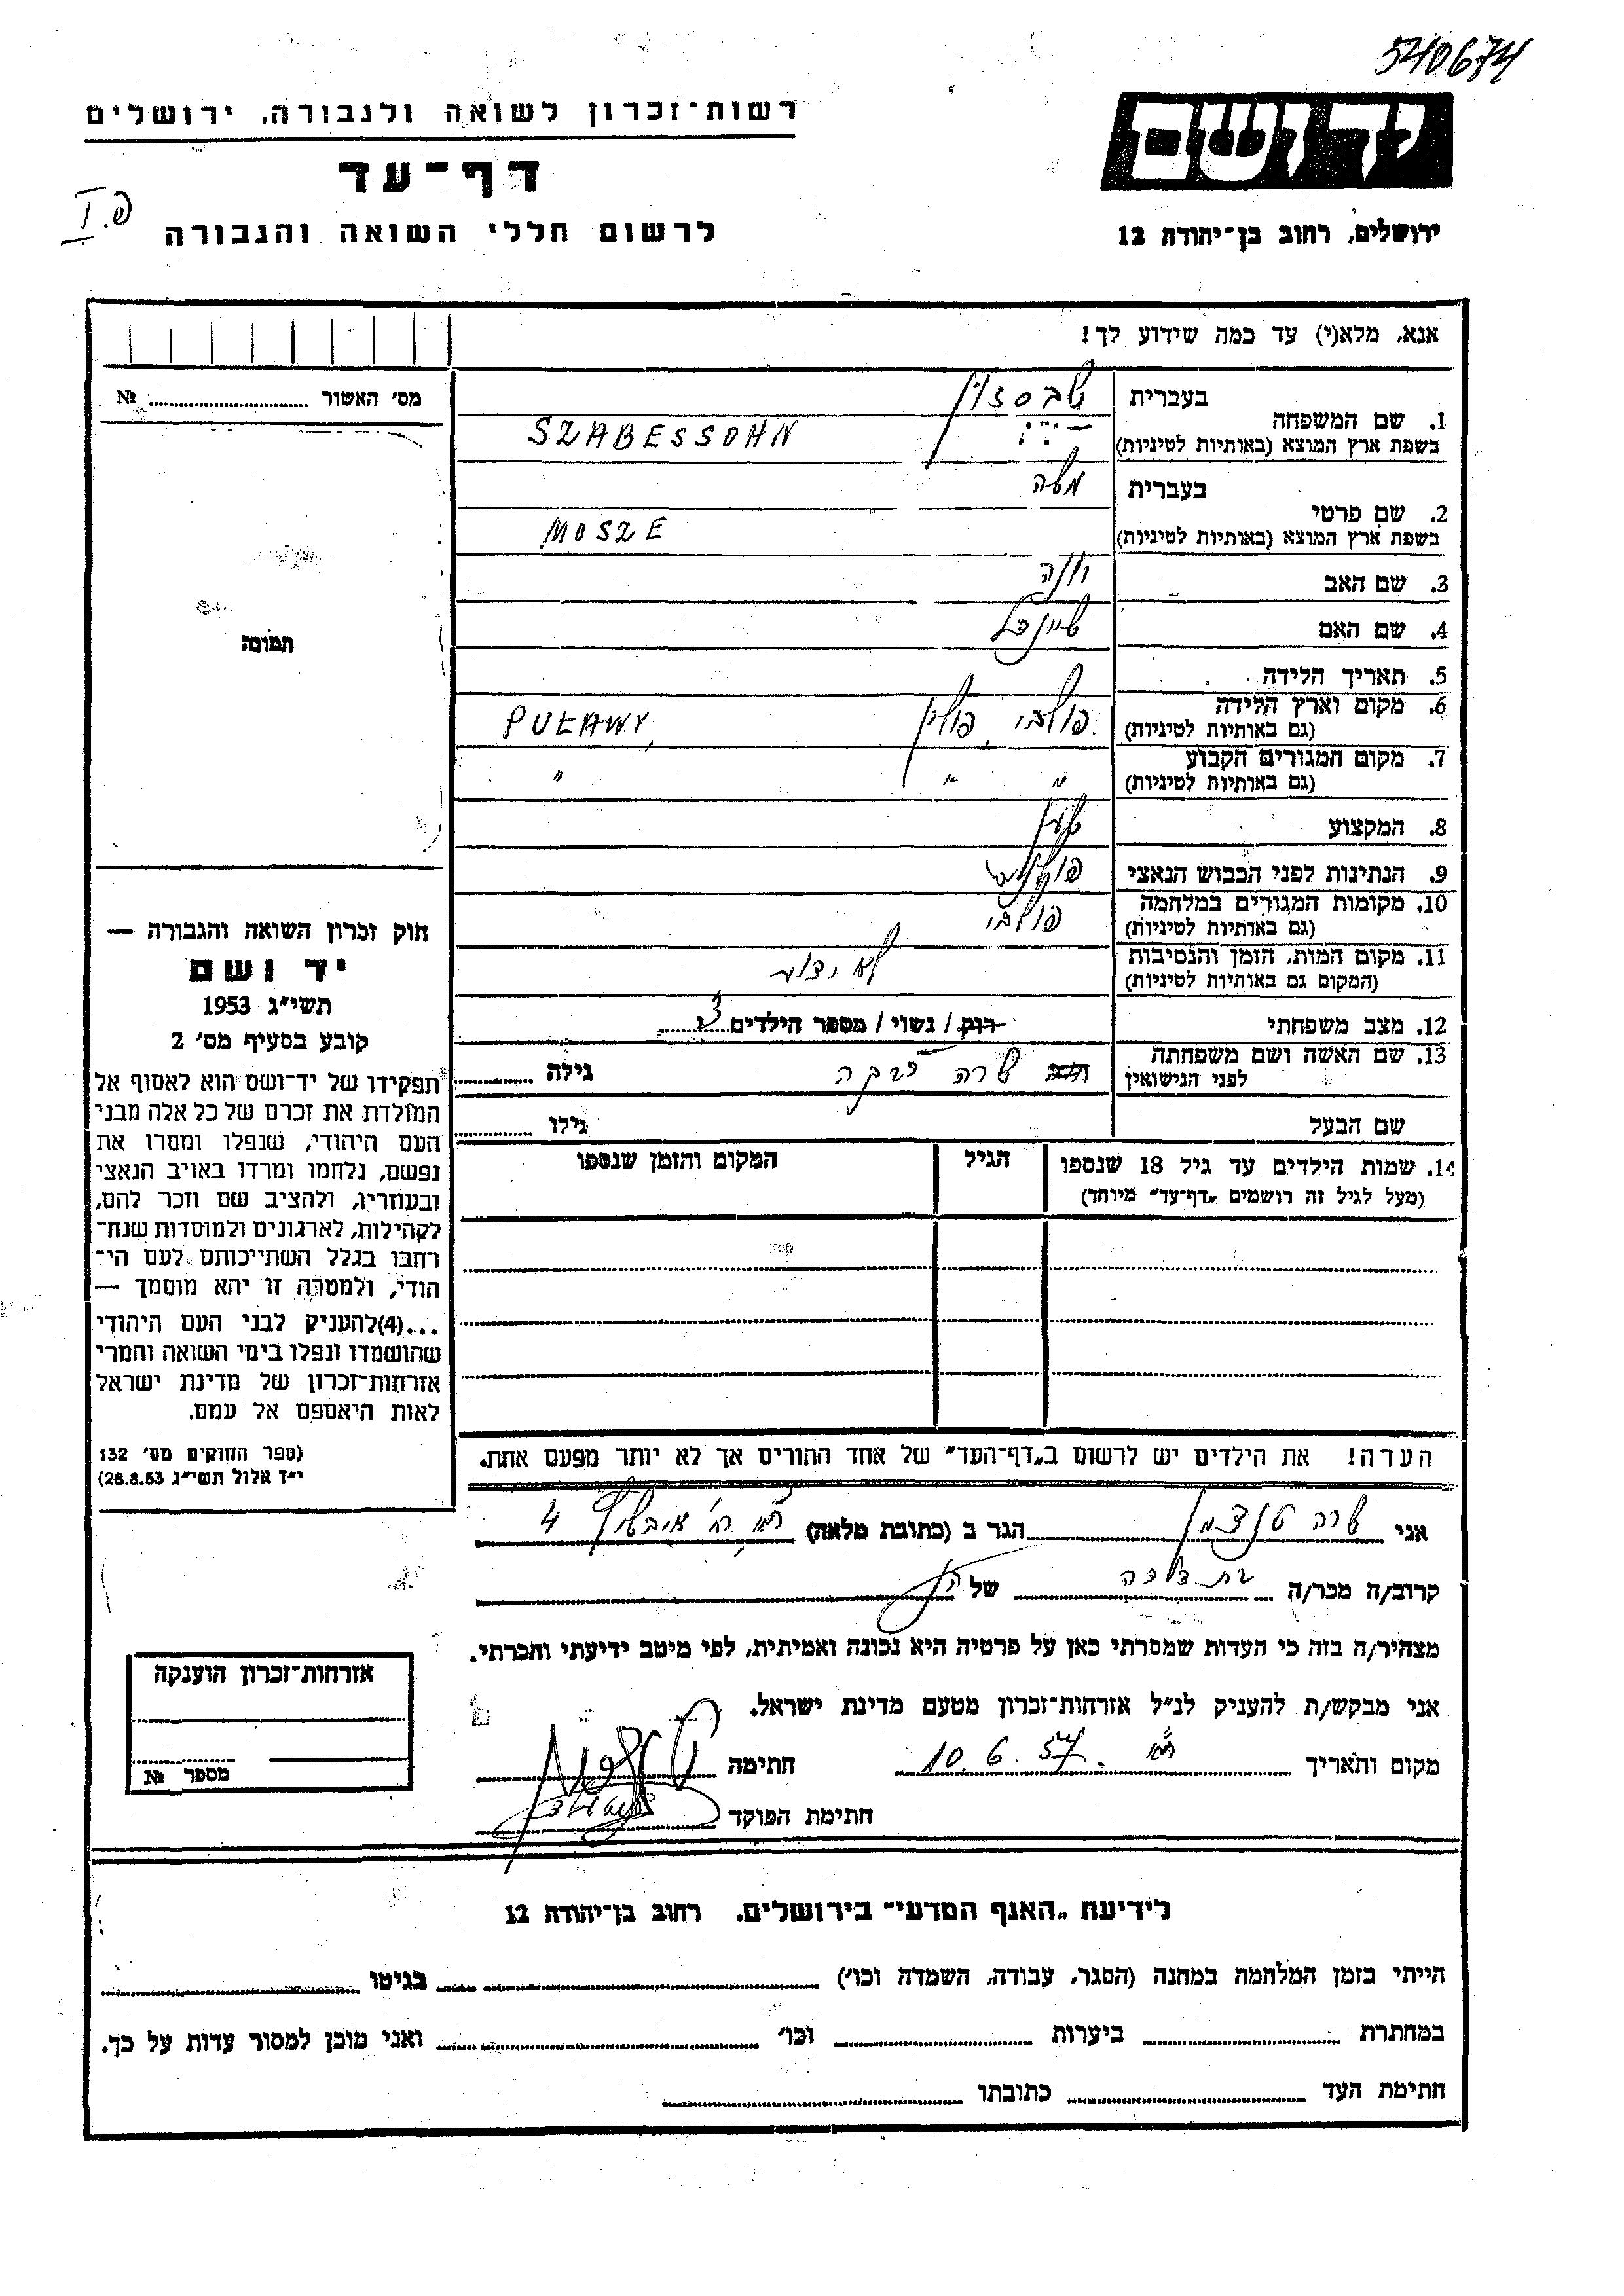 540674
רשות-זכרון לשואה ולגבורה, ירושלים
דף-עד
לרשום חללי השואה והגבורה
ידושם
ירושלים, רחוב בן-יהודה 12
אנא, מלא(י) עד כמה שידוע לך!
מס׳ האשור № 
1. שם המשפחה בעברית
בשפת ארץ המוצא (באותיות לטיניות) SZABESSOHN
2. שם פרטי בעברית משה
בשפת ארץ המוצא (באותיות לטיניות) MOSZE
3. שם האב
4. שם האם
5. תאריך הלידה
6. מקום וארץ הלידה (גם באותיות לטיניות) פולבי, פולין PUŁAWY,
7. מקום המגורים הקבוע (גם באותיות לטיניות) " " "
8. המקצוע
9. הנתינות לפני הכבוש הנאצי
10. מקומות המגורים במלחמה (גם באותיות לטיניות) פולבי
11. מקום המות, הזמן והנסיבות (המקום גם באותיות לטיניות) לא ידוע
12. מצב משפחתי רוק / נשוי / מספר הילדים 3
13. שם האשה ושם משפחתה לפני הנישואין שרה רבקה גילה
שם הבעל גילו
14. שמות הילדים עד גיל 18 שנספו (מעל לגיל זה רושמים „דף-עד" מיוחד) הגיל המקום והזמן שנספו
הערה! את הילדים יש לרשום ב„דף-העד" של אחד ההורים אך לא יותר מפעם אחת.
תמונה
חוק זכרון השואה והגבורה —
יד ושם
תשי״ג 1953
קובע בסעיף מס׳ 2
תפקידו של יד-ושם הוא לאסוף אל
המולדת את זכרם של כל אלה מבני
העם היהודי, שנפלו ומסרו את
נפשם, נלחמו ומרדו באויב הנאצי
ובעוזריו, ולהציב שם וזכר להם,
לקהילות, לארגונים ולמוסדות שנח-
רחבו בגלל השתייכותם לעם הי-
הודי, ולמטרה זו יהא מוסמך —
...(4)להעניק לבני העם היהודי
שהושמדו ונפלו בימי השואה והמרי
אזרחות-זכרון של מדינת ישראל
לאות היאספם אל עמם.
(ספר החוקים מס׳ 132
י״ד אלול תשי״ג 28.8.53)
אני שרה הגר ב (כתובת מלאה) 4
קרוב/ה מכר/ה של
מצהיר/ה בזה כי העדות שמסרתי כאן על פרטיה היא נכונה ואמיתית, לפי מיטב ידיעתי והכרתי.
אני מבקש/ת להעניק לנ״ל אזרחות-זכרון מטעם מדינת ישראל.
מקום ותאריך 10.6.57 חתימה
חתימת הפוקד
אזרחות-זכרון הוענקה
מספר №
לידיעת „האגף המדעי" בירושלים, רחוב בן-יהודה 12
הייתי בזמן המלחמה במחנה (הסגר, עבודה, השמדה וכו׳) בגיטו
במחתרת ביערות וכו׳ ואני מוכן למסור עדות על כך.
חתימת העד כתובתו